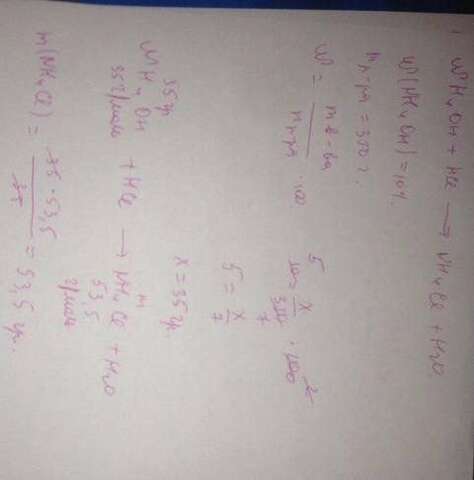 NH₄OH + HCl → NH₄Cl + H₂O
W(NH₄OH) = 10%
m р-ра = 350 г.
W = m в-ва / m р-ра · 100
5
10 = x / 350 · 100 2
7
5 = x / 7
x = 35 гр.
35 гр m
NH₄OH + HCl → NH₄Cl + H₂O
35 г/моль 53,5 г/моль
m(NH₄Cl) = 35 · 53,5 / 35 = 53,5 гр.